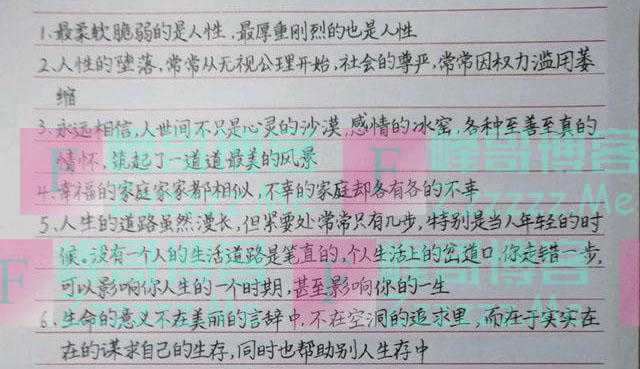 1.最柔软脆弱的是人性,最厚重刚烈的也是人性
2.人性的堕落,常常从无视公理开始,社会的尊严,常常因权力滥用萎
缩
3.永远相信,人世间不只是心灵的沙漠,感情的冰窖,各种至善至真的
情怀,筑起了一道道最美的风景
4.幸福的家庭家家都相似,不幸的家庭却各有各的不幸
5.人生的道路虽然漫长,但紧要处常常只有几步,特别是当人年轻的时
候。没有一个人的生活道路是笔直的,个人生活上的岔道口,你走错一步,
可以影响你人生的一个时期,甚至影响你的一生
6.生命的意义不在美丽的言辞中,不在空洞的追求里,而在于实实在
在的谋求自己的生存,同时也帮助别人生存中